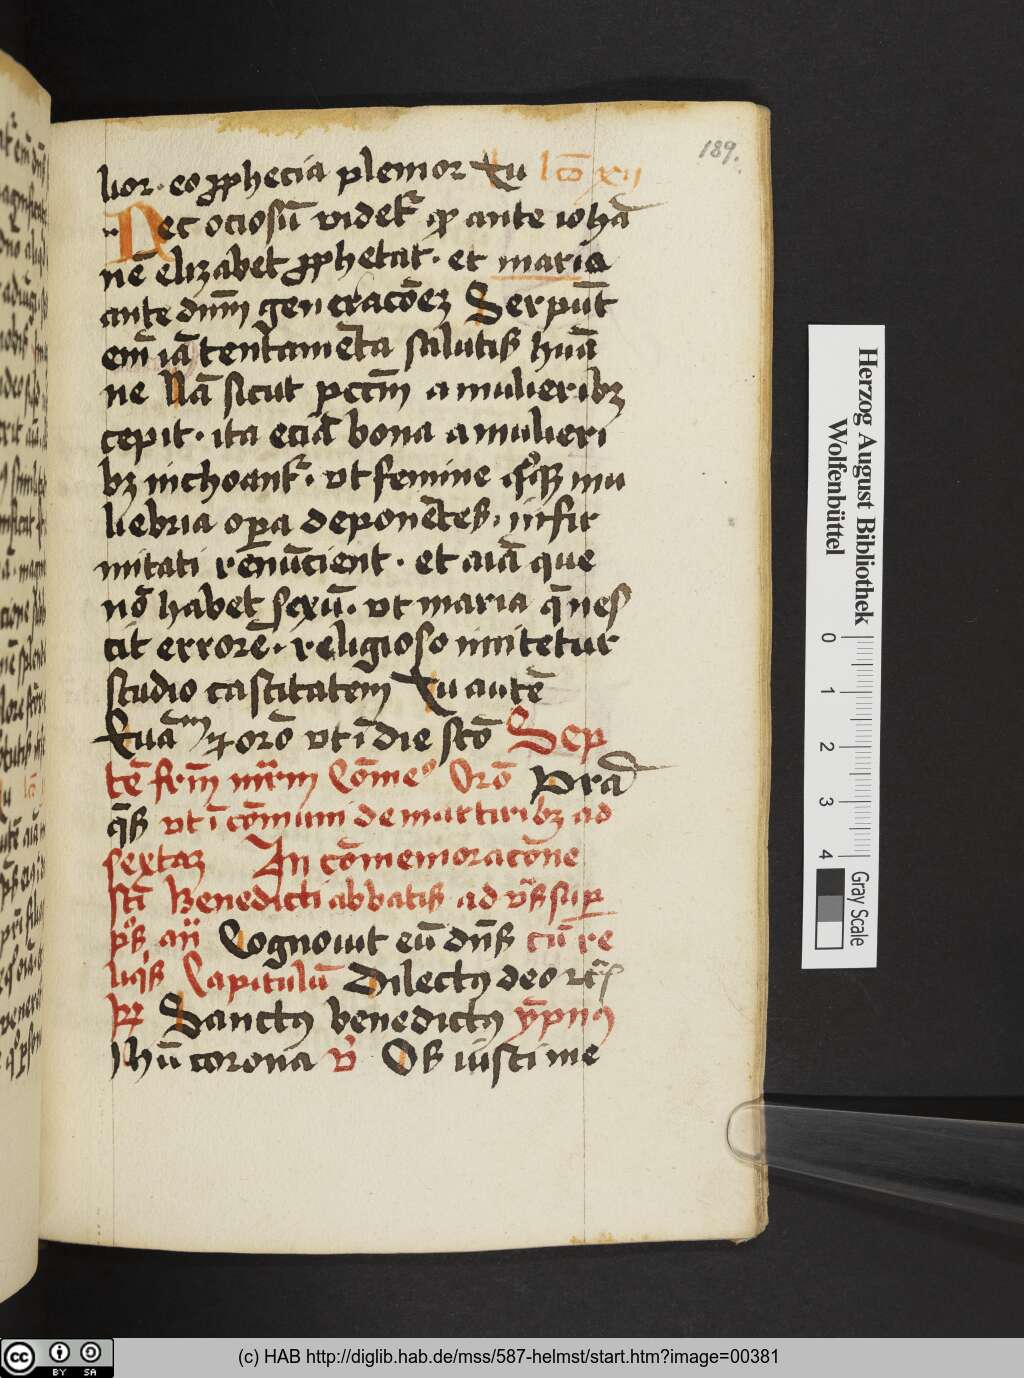 189.
lior · eo ꝓphecia plenior Tu lc̄o xij
Nec ociosū videt᷑ ꝙ ante iohā
nē elizabet ꝓphetat · et maria
ante dn̄m generacōez Serpūt
em̄ iā tentamēta salutis humā
ne Nā sicut pctm̄ a mulieribꝫ
cepit · ita eciā bona a mulieri
bꝫ inchoant᷑ · vt femine mu
liebria oꝑa deponētes · infir
mitati renūcient · et aīa que
nō habet sexū · vt maria q̄ nes
cit errorē · religioso imitetur
studio castitatem Tu autē
orō vt ī die sctō Sep
tē frm̄ mr̄m Cōme⁹ Orō Pra
q̄s vt ī cōmuni de martiribꝫ ad
sextaꝫ In cōmemoracōne
sctī Benedicti abbatis ad v̄s suꝑ
p̄s an̄ Cognouit eū dn̄s cū re
liq̄s Capitulū Dilectꝰ deo
Sanctꝰ benedictꝰ ympnꝰ
Ihū corona v̄ Os iusti me
Herzog August Bibliothek
Wolfenbüttel
0 1 2 3 4
Gray Scale
cc BY SA
(c) HAB http://diglib.hab.de/mss/587-helmst/start.htm?image=00381